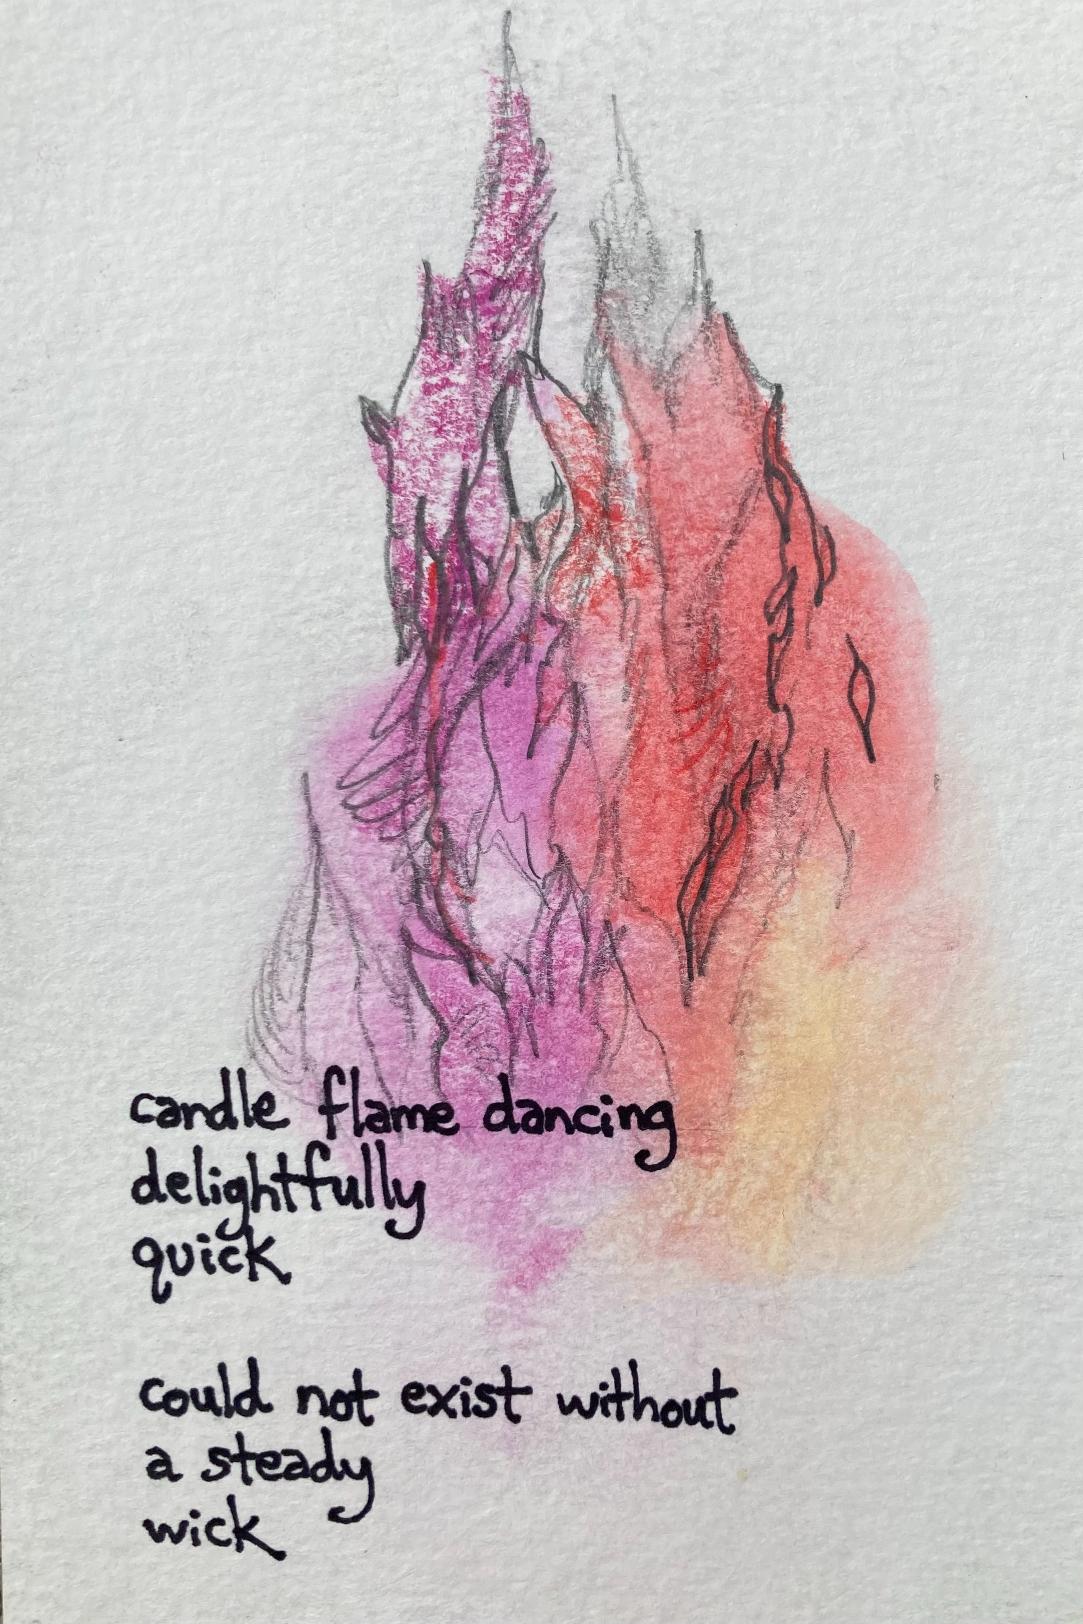 candle flame dancing
delightfully
quick
could not exist without
a steady
wick